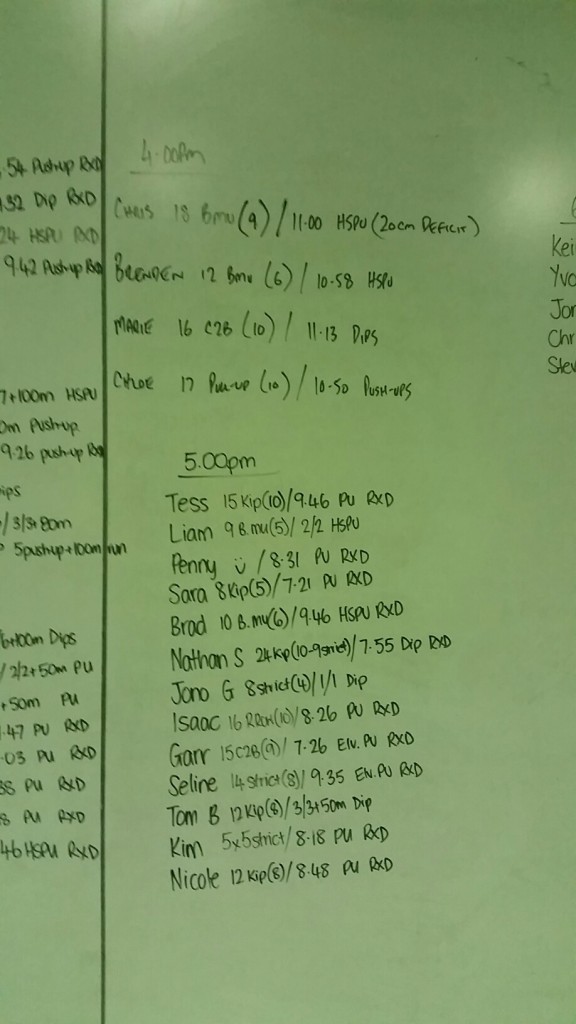 .54 Pushup RXD
.32 Dip RXD
24 HSPU RXD
9.42 Pushup RXD
7+100m HSPU
0m Pushup
9.26 pushup RXD
ips
/3/3+80m
5pushup+100m run
6+100m Dips
/2/2+50m PU
+50m PU
.47 PU RXD
.03 PU RXD
38 PU RXD
8 PU RXD
46 HSPU RXD
4.00pm
CHRIS 18 Bmu (9) / 11.00 HSPU (20cm DEFICIT)
BRENDEN 12 Bmu (6) / 10.58 HSPU
MARIE 16 C2B (10) / 11.13 DIPS
CHLOE 17 PULL-UP (10) / 10.50 PUSH-UPS
5.00pm
Tess 15 Kip(10)/9.46 PU RXD
Liam 9 B.mu(5)/ 2/2 HSPU
Penny /8.31 PU RXD
Sara 8Kip(5)/7.21 PU RXD
Brad 10 B.mu(6)/9.46 HSPU RXD
Nathan S 24Kip(10-9strict)/7.55 Dip RXD
Jono G 8strict(4)/1/1 Dip
Isaac 16 (10)/8.26 PU RXD
Garr 15C2B(9)/ 7.26 Elv.PU RXD
Seline 14strict(8)/ 9.35 Elv.PU RXD
Tom B 12Kip(8)/3/3+50m Dip
Kim 5x5strict/8.18 PU RXD
Nicole 12Kip(8)/8.48 PU RXD
Kei
Yvo
Jon
Chr
Stev